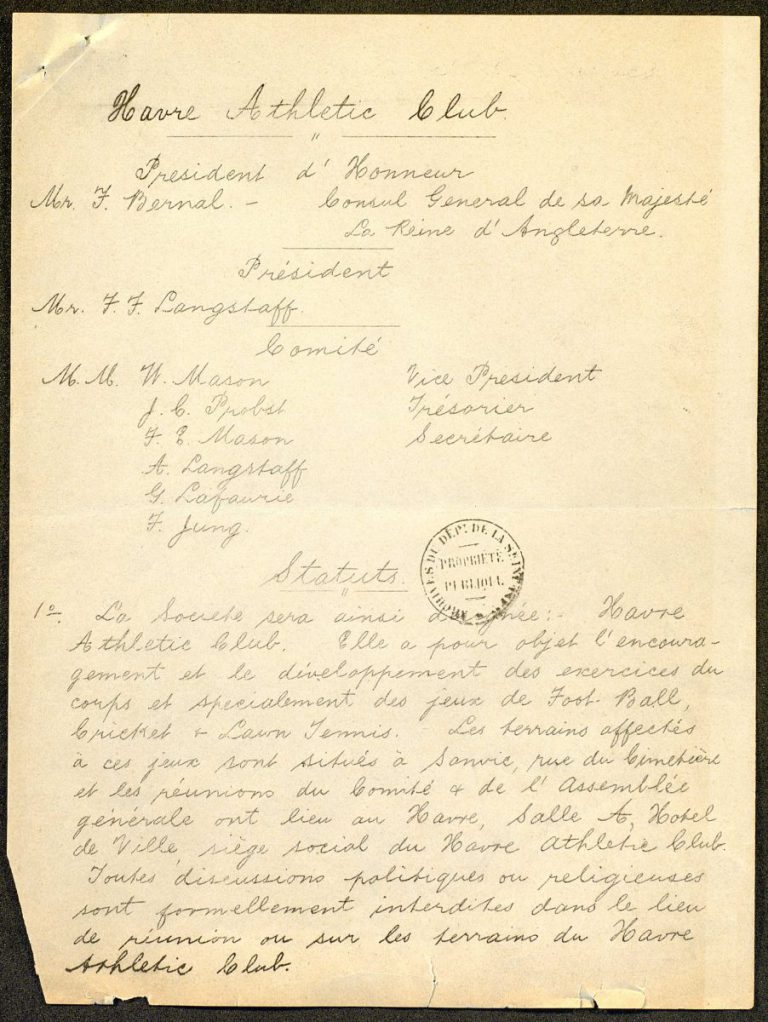 Havre Athletic Club.
"
Président d'Honneur
Mr. F. Bernal. - Consul General de sa Majesté
La Reine d'Angleterre.
Président
Mr. F. F. Langstaff.
Comité
M. M. W. Mason Vice President
J. C. Probst Trésorier
F. E. Mason Secrétaire
A. Langstaff
G. Lafaurie
F. Jung.
ARCHIVES DU DÉPT. DE LA SEINE
PROPRIÉTÉ
PUBLIQUE
Statuts.
"
1o. La Societé sera ainsi :- Havre
Athletic Club. Elle a pour objet l'encoura-
gement et le développement des exercices du
corps et specialement des jeux de Foot-Ball,
Cricket & Lawn Tennis. - Les terrains affectés
à ces jeux sont situés à Sanvic, rue du Cimetière
et les réunions du Comité & de l'Assemblée
générale ont lieu au Havre, Salle A, Hotel
de Ville, siège social du Havre Athletic Club.
Toutes discussions politiques ou religieuses
sont formellement interdites dans le lieu
de réunion ou sur les terrains du Havre
Athletic Club.